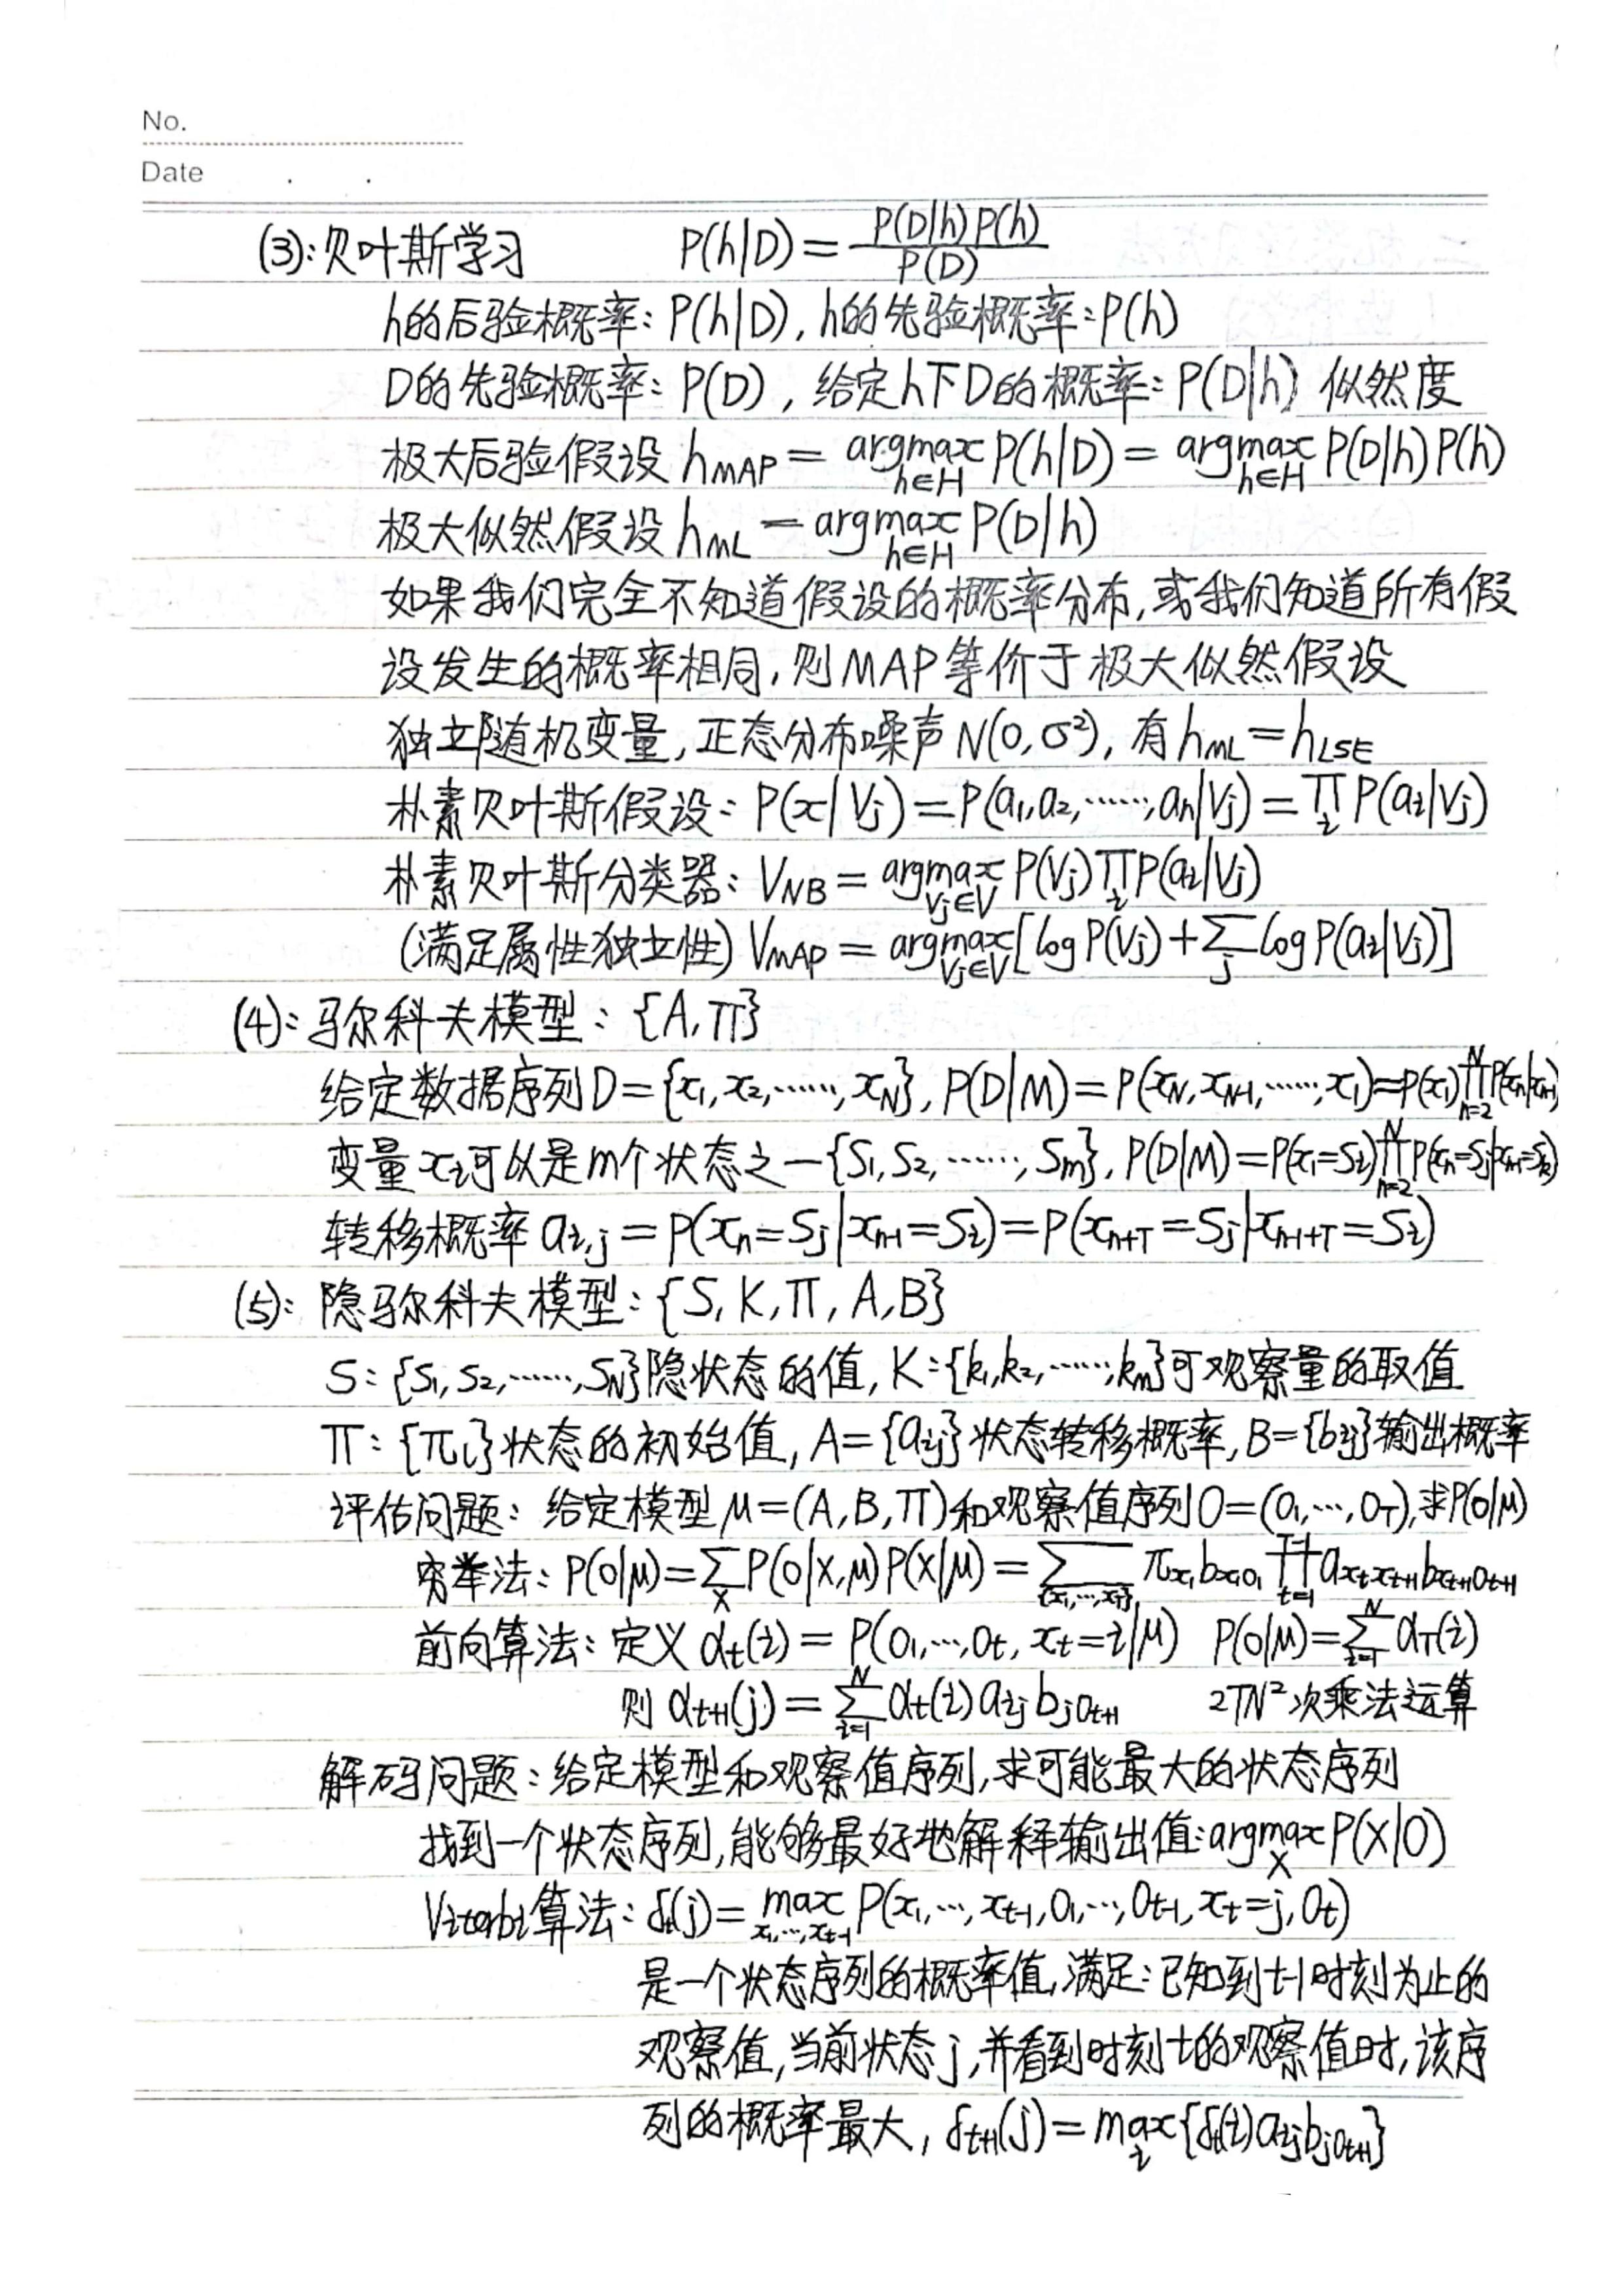 No.
Date . .
(3):贝叶斯学习 P(h|D)=P(D|h)P(h)/P(D)
h的后验概率:P(h|D),h的先验概率:P(h)
D的先验概率:P(D),给定h下D的概率:P(D|h) 似然度
极大后验假设 h_MAP = argmax_{h∈H} P(h|D) = argmax_{h∈H} P(D|h)P(h)
极大似然假设 h_ML = argmax_{h∈H} P(D|h)
如果我们完全不知道假设的概率分布,或我们知道所有假
设发生的概率相同,则MAP等价于极大似然假设
独立随机变量,正态分布噪声N(0,σ²),有h_ML=h_LSE
朴素贝叶斯假设:P(x|Vj)=P(a1,a2,……,an|Vj)=∏_i P(ai|Vj)
朴素贝叶斯分类器:V_NB = argmax_{Vj∈V} P(Vj)∏_i P(ai|Vj)
(满足属性独立性) V_MAP = argmax_{Vj∈V}[log P(Vj)+∑_j log P(ai|Vj)]
(4):马尔科夫模型:{A,π}
给定数据序列D={x1,x2,……,xN},P(D|M)=P(xN,xN-1,……,x1)=P(x1)∏_{n=2}^{N} P(xn|xn-1)
变量xi可以是m个状态之一{S1,S2,……,Sm},P(D|M)=P(x1=Si)∏_{n=2}^{N} P(xn=Sj|xn-1=Sk)
转移概率 a_{i,j}=P(xn=Sj|xn-1=Si)=P(xn+T=Sj|xn-1+T=Si)
(5):隐马尔科夫模型:{S,K,π,A,B}
S:{S1,S2,……,SN}隐状态的值,K:{k1,k2,……,km}可观察量的取值
π:{πi}状态的初始值,A={aij}状态转移概率,B={bij}输出概率
评估问题:给定模型μ=(A,B,π)和观察值序列O=(O1,…,OT),求P(O|μ)
穷举法:P(O|μ)=∑_X P(O|X,μ)P(X|μ)=∑_{{x1,…,xT}} π_{x1} b_{x1o1} ∏_{t=1}^{T-1} a_{xt xt+1} b_{xt+1 ot+1}
前向算法:定义αt(i)=P(O1,…,Ot,xt=i|μ) P(O|μ)=∑_{i=1}^{N} αT(i)
则αt+1(j)=∑_{i=1}^{N} αt(i)aij b_{jot+1} 2TN²次乘法运算
解码问题:给定模型和观察值序列,求可能最大的状态序列
找到一个状态序列,能够最好地解释输出值:argmax_X P(X|O)
Viterbi算法:δt(j)=max_{x1,…,xt-1} P(x1,…,xt-1,O1,…,Ot-1,xt=j,Ot)
是一个状态序列的概率值,满足:已知到t-1时刻为止的
观察值,当前状态j,并看到时刻t的观察值时,该序
列的概率最大,δt+1(j)=max_i{δt(i)aij b_{jot+1}}